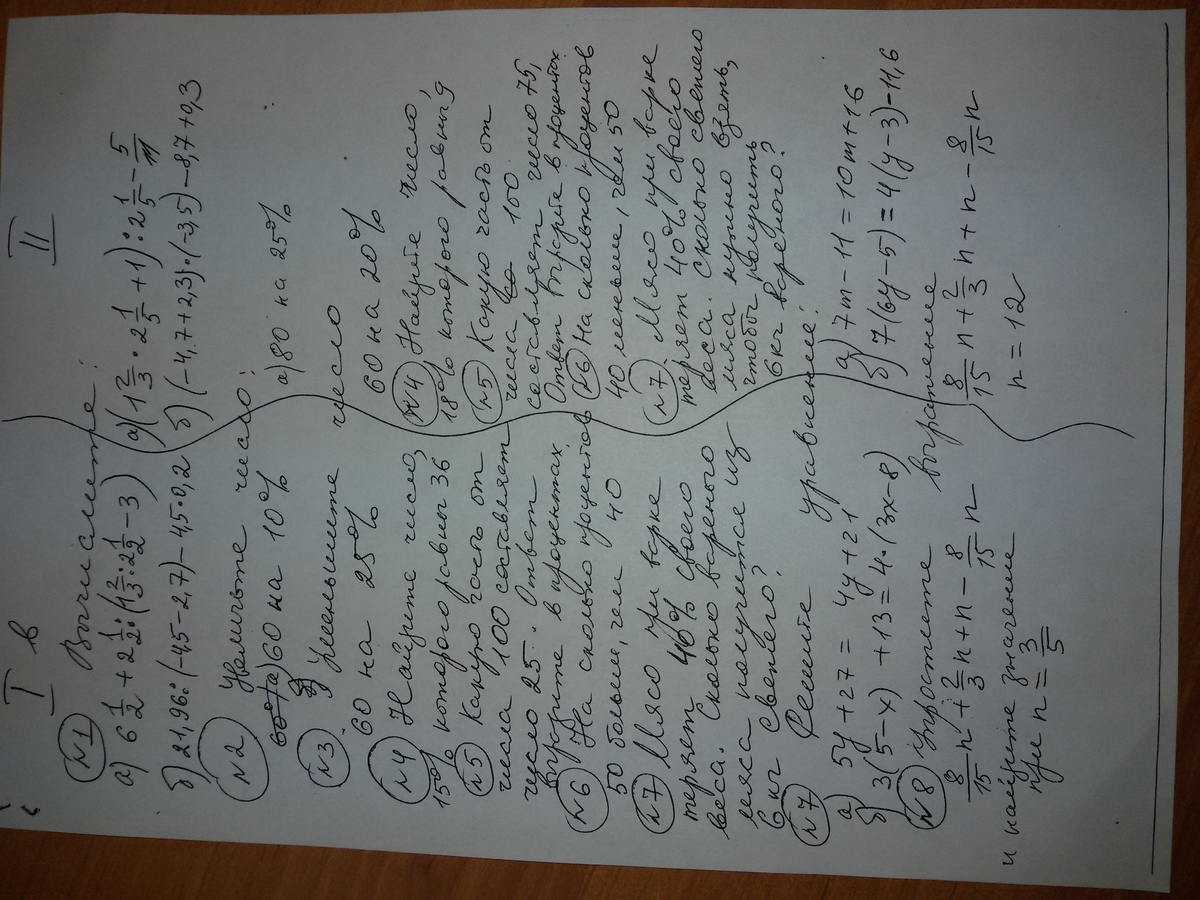 I в
№1 Вычислите:
а) 6 1/2 + 2 1/2 : (1 2/3 · 2 1/2 - 3)
б) 21,96 : (-4,5 - 2,7) - 4,5 · 0,2
№2 Увеличьте число:
а) 60 на 10%
№3 Уменьшите число
60 на 25%
№4 Найдите число,
15% которого равны 36
№5 Какую часть от
числа 100 составляет
число 25. Ответ
выразите в процентах
№6 На сколько процентов
50 больше, чем 40
№7 Мясо при варке
теряет 40% своего
веса. Сколько вареного
мяса получится из
6 кг свежего?
№7 Решите уравнение:
а) 5y + 27 = 4y + 21
б) 3(5 - x) + 13 = 4 · (3x - 8)
№8 Упростите выражение
8/15 n + 2/3 n + n - 8/15 n
и найдите значение
при n = 3/5
II
а) (1 2/3 · 2 1/5 + 1) : 2 1/5 - 5/11
б) (-4,7 + 2,3) · (-3,5) - 8,7 + 0,3
а) 80 на 25%
60 на 20%
№4 Найдите число,
18% которого равны 9
№5 Какую часть от
числа 150
составляет число 75,
Ответ выразите в процентах
№6 На сколько процентов
40 меньше, чем 50
№7 Мясо при варке
теряет 40% своего
веса. Сколько свежего
мяса нужно взять,
чтобы получить
6 кг вареного?
а) 7m - 11 = 10m + 16
б) 7(6y - 5) = 4(y - 3) - 11,6
8/15 n + 2/3 n + n - 8/15 n
n = 12